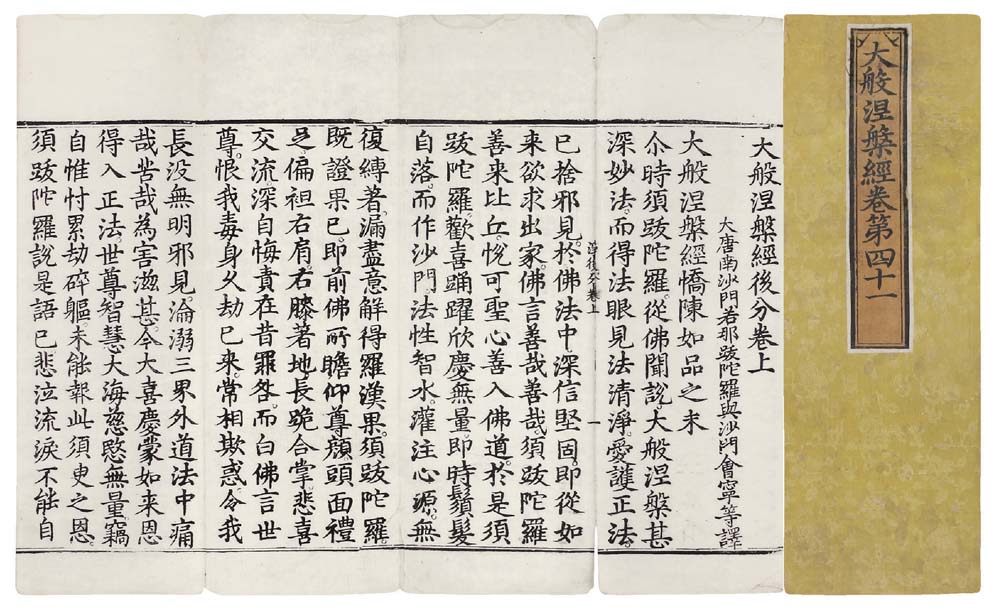 大般涅槃經卷第四十一
大般涅槃經後分卷上
大唐南沙門若那跋陀羅與沙門會寧等譯
大般涅槃經憍陳如品之末
尒時須跋陀羅。從佛聞說。大般涅槃甚
深妙法。而得法眼見法清淨。愛護正法。
涅後分卷上 一
已捨邪見。於佛法中。深信堅固。即從如
來欲求出家。佛言善哉善哉。須跋陀羅
善來比丘。恱可聖心善入佛道。於是須
跋陀羅。歡喜踊躍欣慶無量。即時鬚髮
自落。而作沙門。法性智水。灌注心源。無
復縛著。漏盡意解得羅漢果。須跋陀羅。
既證果已。即前佛所。瞻仰尊顏頭面禮
足。偏袒右肩。右膝著地長跪合掌。悲喜
交流深自悔責在昔罪咎。而白佛言世
尊。恨我毒身久劫已來。常相欺惑。令我
長没無明邪見。淪溺三界外道法中痛
哉苦哉為害滋甚。今大喜慶。蒙如來恩
得入正法。世尊。智慧大海慈愍無量。竊
自惟忖累劫碎軀。未能報此須臾之恩。
須跋陀羅說是語已悲泣流淚不能自